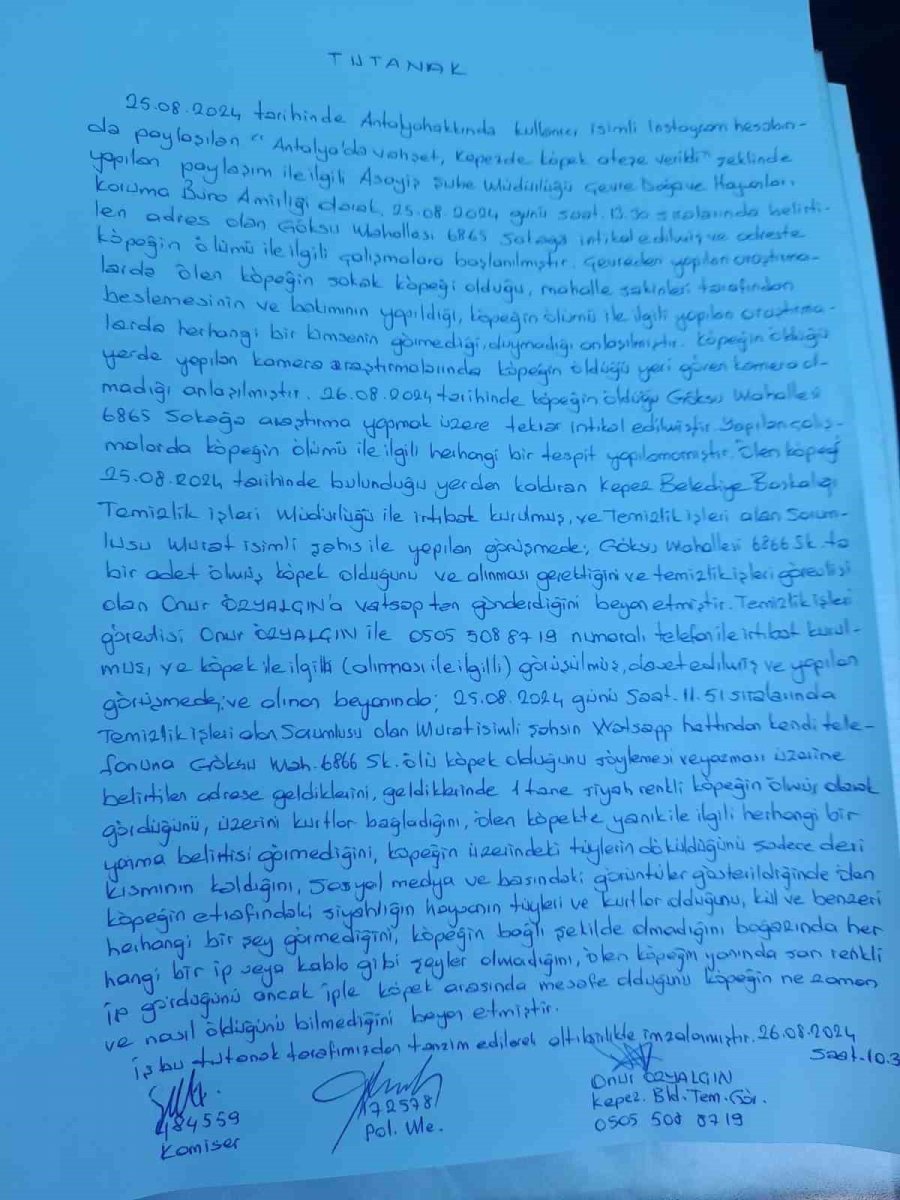 TUTANAK
25.08.2024 tarihinde Antalyahakkında kullanıcı isimli Instagram hesabın-
da paylaşılan "Antalya'da vahşet, Kepezde köpek ateşe verildi" şeklinde
yapılan paylaşım ile ilgili Asayiş Şube Müdürlüğü Çevre Doğa ve Hayvanları
Koruma Büro Amirliği olarak, 25.08.2024 günü saat. 13.30 sıralarında belirti-
len adres olan Göksu Mahallesi 6865 Sokağa intikal edilmiş ve adreste
köpeğin ölümü ile ilgili çalışmalara başlanılmıştır. Çevreden yapılan araştırma-
larda ölen köpeğin sokak köpeği olduğu, mahalle sakinleri tarafından
beslemesinin ve bakımının yapıldığı, köpeğin ölümü ile ilgili yapılan araştırma-
larda herhangi bir kimsenin görmediği, duymadığı anlaşılmıştır. Köpeğin öldüğü
yerde yapılan kamera araştırmalarında köpeğin öldüğü yeri gören kamera ol-
madığı anlaşılmıştır. 26.08.2024 tarihinde köpeğin öldüğü Göksu Mahallesi
6865 Sokağa araştırma yapmak üzere tekrar intikal edilmiştir. Yapılan çalış-
malarda köpeğin ölümü ile ilgili herhangi bir tespit yapılamamıştır. Ölen köpeği
25.08.2024 tarihinde bulunduğu yerden kaldıran Kepez Belediye Başkalığı
Temizlik işleri Müdürlüğü ile irtibat kurulmuş, ve Temizlik işleri alan Sorum-
lusu Murat isimli şahıs ile yapılan görüşmede; Göksu Mahallesi 6866 Sk. ta
bir adet ölmüş köpek olduğunu ve alınması gerektiğini ve temizlik işleri görevlisi
olan Onur ÖZYALGIN'a vatsap ten gönderdiğini beyan etmiştir. Temizlik işleri
göredisi Onur ÖZYALGIN ile 0505 508 8719 numaralı telefon ile irtibat kurul-
muş, ve köpek ile ilgili (alınması ile ilgilli) görüşülmüş, davet edilmiş ve yapılan
görüşmede; ve alınan beyanında; 25.08.2024 günü Saat. 11.51 sıralarında
Temizlik işleri alan Sorumlusu olan Murat isimli şahsın Watsapp hattından kendi tele-
fonuna Göksu Mah. 6866 Sk. ölü köpek olduğunu söylemesi ve yazması üzerine
belirtilen adrese geldiklerini, geldiklerinde 1 tane siyah renkli köpeğin ölmüş olarak
gördüğünü, üzerini kurtlar bağladığını, ölen köpekte yanık ile ilgili herhangi bir
yanma belirtisi görmediğini, köpeğin üzerindeki tüylerin döküldüğünü sadece deri
kısmının kaldığını, sosyal medya ve basındaki görüntüler gösterildiğinde ölen
köpeğin etrafındaki siyahlığın hayvanın tüyleri ve kurtlar olduğunu, kül ve benzeri
herhangi bir şey görmediğini, köpeğin bağlı şekilde olmadığını boğazında her
hangi bir ip veya kablo gibi şeyler olmadığını, ölen köpeğin yanında sarı renkli
ip gördüğünü ancak iple köpek arasında mesafe olduğunu köpeğin ne zaman
ve nasıl öldüğünü bilmediğini beyan etmiştir.
İşbu tutanak tarafımızdan tanzim edilerek altı birlikte imzalamıştır. 26.08.2024
Saat. 10.3
484559
Komiser
172578
Pol. Me.
Onur ÖZYALGIN
Kepez. Bld. Tem. Gör.
0505 508 8719